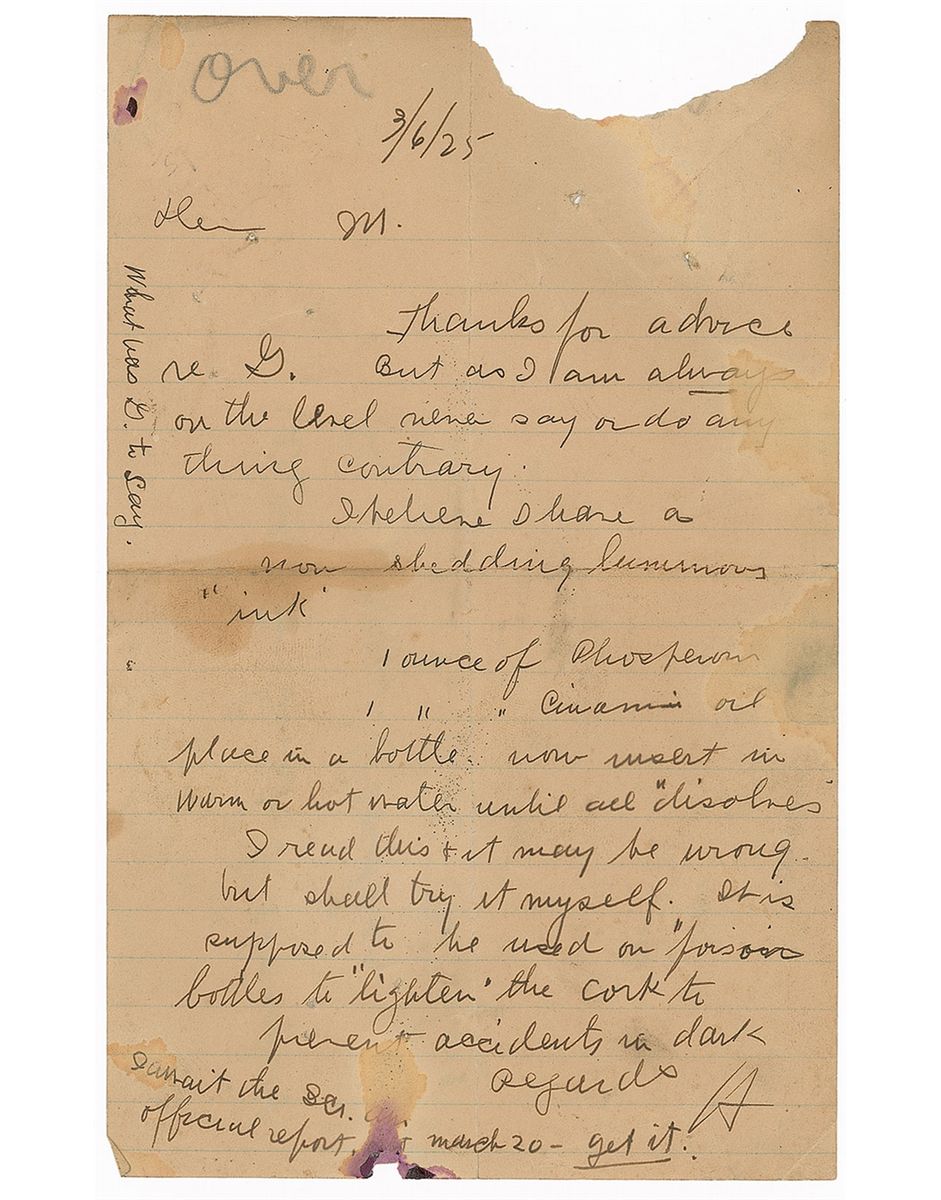 Over
3/6/25
Dear M.
Thanks for advice
re G. But as I am always
on the level never say or do any
thing contrary.
I believe I have a
non shedding luminous
"ink"
1 ounce of Phosperous
1 " " Cinamin oil
place in a bottle. now insert in
warm or hot water until all "disolves"
I read this & it may be wrong.
but shall try it myself. It is
supposed to be used on "poison
bottles to "lighten" the cork to
prevent accidents in dark
Regards
H
I await the Sci.
official report. march 20 – get it.
What was G. to Say.